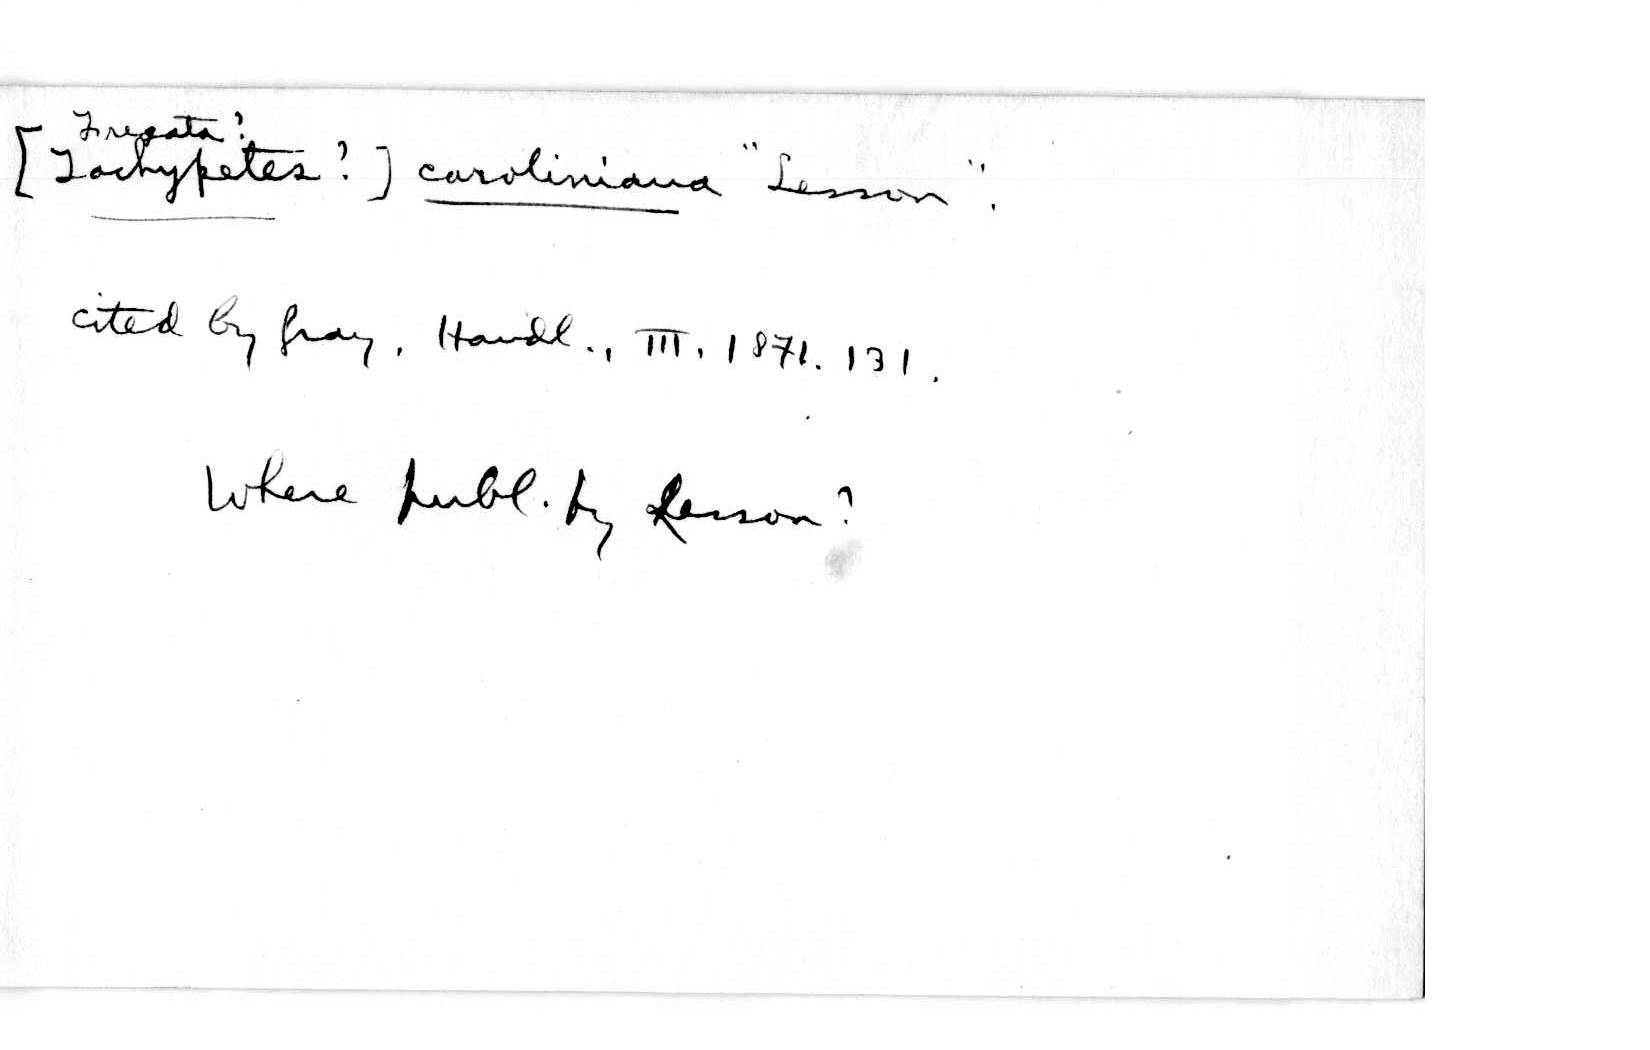 Fregata?
[Tachypetes?] caroliniana "Lesson".
cited by Gray, Handl., III, 1871. 131.
Where publ. by Lesson?